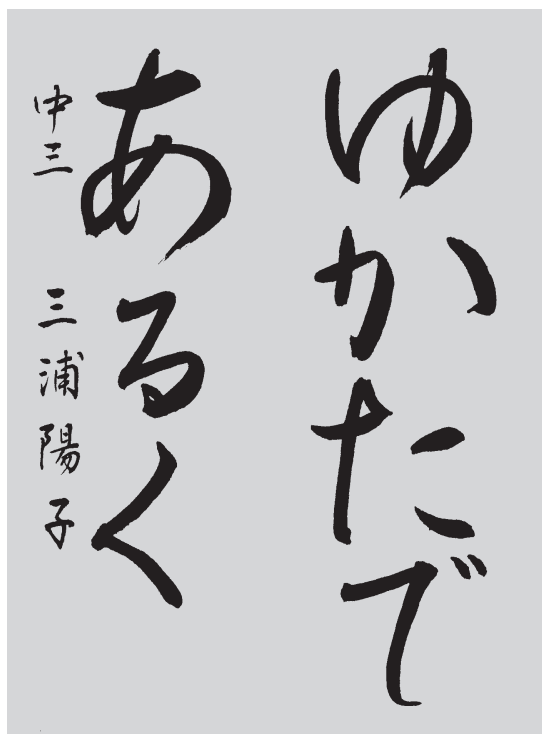 ゆかたで
あるく
中三 三浦陽子